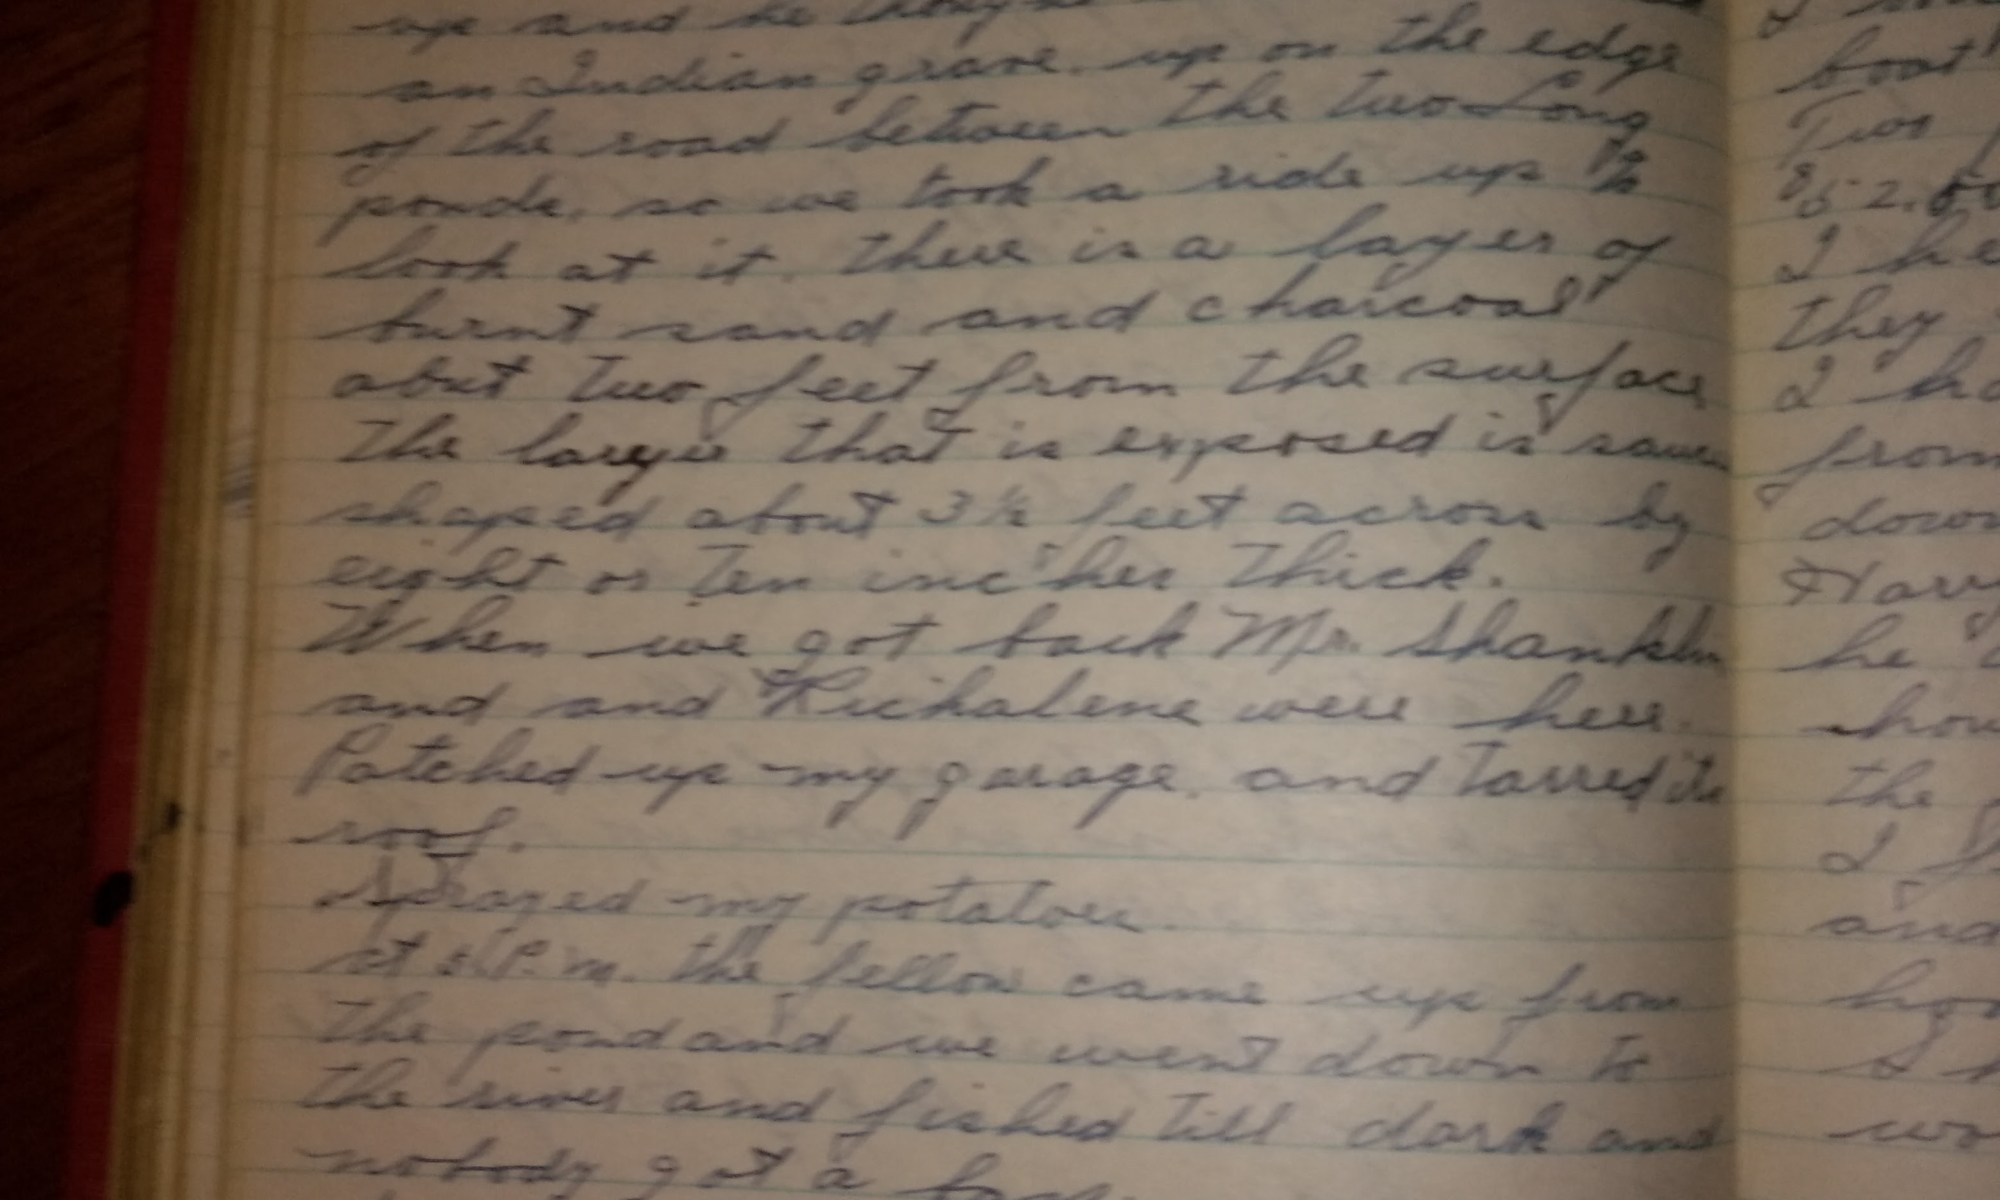 up and he thought
an Indian grave. up on the edge
of the road between the two Long
ponds, so we took a ride up to
look at it. there is a layer of
burnt sand and charcoal
about two feet from the surface
The layer that is exposed is
shaped about 3½ feet across by
eight or ten inches thick.
When we got back Mr. Shanklin
and and Richalene were here.
Patched up my garage. and tarred the
roof.
Sprayed my potatoes.
at P.m. the fellow came up from
the pond and we went down to
the river and fished till dark and
nobody got a
boat
Two
852.
I he
they
I ha
from
down
he
the
I
and